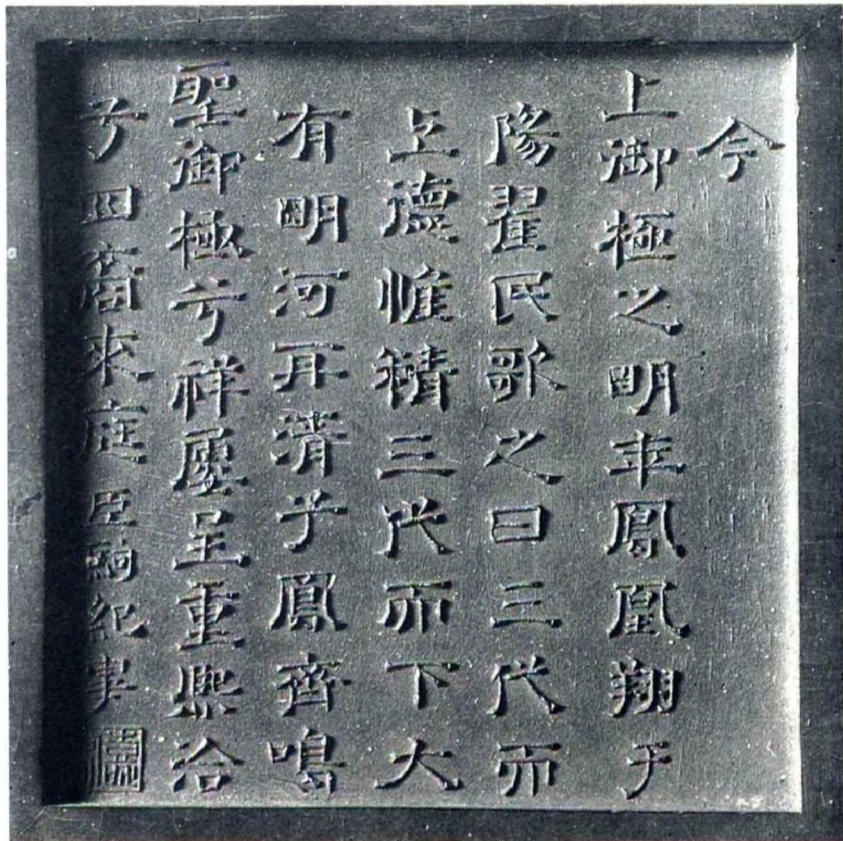 今
上御極之明年鳳凰翔于
陽翟民歌之曰三代而
上德惟精三代而下大
有明河再清兮鳳齊鳴
聖御極兮祥屢呈重熙洽
兮四裔來庭臣紀事